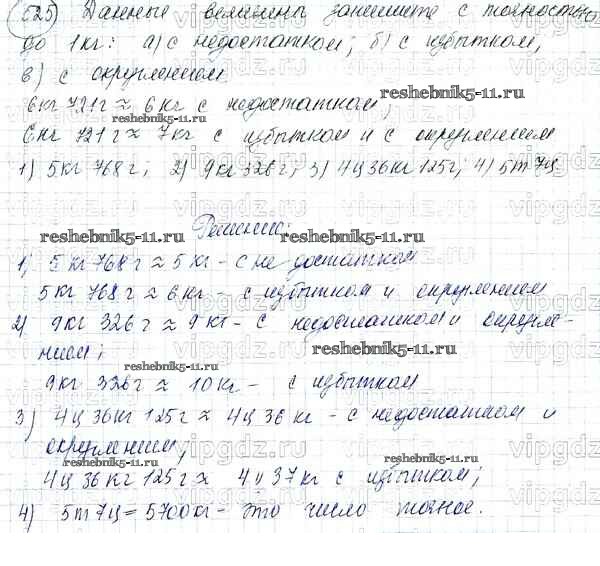 525) Данные величины запишите с точностью
до 1кг: а) с недостатком; б) с избытком;
в) с округлением.
reshebnik5-11.ru
6кг 721г ≈ 6кг с недостатком;
6кг 721г ≈ 7кг с избытком и с округлением
1) 5кг 768г; 2) 9кг 326г; 3) 4ц 36кг 125г; 4) 5т 7ц.
Решение:
reshebnik5-11.ru
reshebnik5-11.ru
1) 5кг 768г ≈ 5кг - с недостатком
5кг 768г ≈ 6кг - с избытком и округлением
2) 9кг 326г ≈ 9кг - с недостатком и округле-
нием;
reshebnik5-11.ru
reshebnik5-11.ru
9кг 326г ≈ 10кг - с избытком
3) 4ц 36кг 125г ≈ 4ц 36кг - с недостатком и
округлением;
reshebnik5-11.ru
4ц 36кг 125г ≈ 4ц 37кг с избытком;
4) 5т 7ц = 5700кг - это число точное.
vipgdz.ru